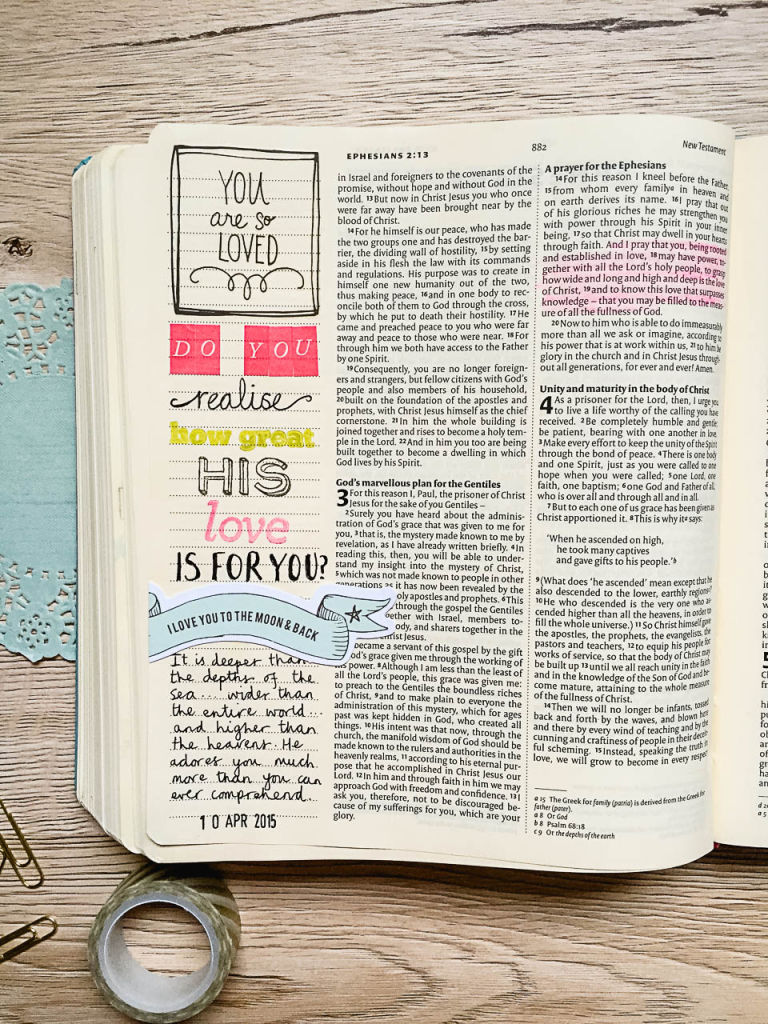 EPHESIANS 2:13
882
New Testament
YOU
are so
LOVED
DO YOU
realise
how great
HIS
love
IS FOR YOU?
I LOVE YOU TO THE MOON & BACK
It is deeper than
the depths of the
sea... wider than
the entire world...
and higher than
the heavens. He
adores you much
more than you can
ever comprehend...
10 APR 2015
in Israel and foreigners to the covenants of the
promise, without hope and without God in the
world. 13 But now in Christ Jesus you who once
were far away have been brought near by the
blood of Christ.
14 For he himself is our peace, who has made
the two groups one and has destroyed the bar-
rier, the dividing wall of hostility, 15 by setting
aside in his flesh the law with its commands
and regulations. His purpose was to create in
himself one new humanity out of the two,
thus making peace, 16 and in one body to rec-
oncile both of them to God through the cross,
by which he put to death their hostility. 17 He
came and preached peace to you who were far
away and peace to those who were near. 18 For
through him we both have access to the Father
by one Spirit.
19 Consequently, you are no longer foreign-
ers and strangers, but fellow citizens with God's
people and also members of his household,
20 built on the foundation of the apostles and
prophets, with Christ Jesus himself as the chief
cornerstone. 21 In him the whole building is
joined together and rises to become a holy tem-
ple in the Lord. 22 And in him you too are being
built together to become a dwelling in which
God lives by his Spirit.
God's marvellous plan for the Gentiles
3 For this reason I, Paul, the prisoner of Christ
Jesus for the sake of you Gentiles –
2 Surely you have heard about the adminis-
tration of God's grace that was given to me for
you, 3 that is, the mystery made known to me by
revelation, as I have already written briefly. 4 In
reading this, then, you will be able to under-
stand my insight into the mystery of Christ,
5 which was not made known to people in other
generations as it has now been revealed by the
oly apostles and prophets. 6 This
through the gospel the Gentiles
ether with Israel, members to-
ody, and sharers together in the
hrist Jesus.
became a servant of this gospel by the gift
God's grace given me through the working of
his power. 8 Although I am less than the least of
all the Lord's people, this grace was given me:
to preach to the Gentiles the boundless riches
of Christ, 9 and to make plain to everyone the
administration of this mystery, which for ages
past was kept hidden in God, who created all
things. 10 His intent was that now, through the
church, the manifold wisdom of God should be
made known to the rulers and authorities in the
heavenly realms, 11 according to his eternal pur-
pose that he accomplished in Christ Jesus our
Lord. 12 In him and through faith in him we may
approach God with freedom and confidence. 13 I
ask you, therefore, not to be discouraged be-
cause of my sufferings for you, which are your
glory.
A prayer for the Ephesians
14 For this reason I kneel before the Father,
15 from whom every family a in heaven and
on earth derives its name. 16 I pray that out
of his glorious riches he may strengthen you
with power through his Spirit in your inner
being, 17 so that Christ may dwell in your hearts
through faith. And I pray that you, being rooted
and established in love, 18 may have power, to-
gether with all the Lord's holy people, to grasp
how wide and long and high and deep is the love
of Christ, 19 and to know this love that surpasses
knowledge – that you may be filled to the meas-
ure of all the fullness of God.
20 Now to him who is able to do immeasurably
more than all we ask or imagine, according to
his power that is at work within us, 21 to him be
glory in the church and in Christ Jesus through-
out all generations, for ever and ever! Amen.
Unity and maturity in the body of Christ
4 As a prisoner for the Lord, then, I urge you
to live a life worthy of the calling you have
received. 2 Be completely humble and gentle;
be patient, bearing with one another in love.
3 Make every effort to keep the unity of the Spirit
through the bond of peace. 4 There is one body
and one Spirit, just as you were called to one
hope when you were called; 5 one Lord, one
faith, one baptism; 6 one God and Father of all,
who is over all and through all and in all.
7 But to each one of us grace has been given as
Christ apportioned it. 8 This is why it a says:
'When he ascended on high,
he took many captives
and gave gifts to his people.' b
9 (What does 'he ascended' mean except that he
also descended to the lower, earthly regions c?
10 He who descended is the very one who as-
cended higher than all the heavens, in order to
fill the whole universe.) 11 So Christ himself gave
the apostles, the prophets, the evangelists, the
pastors and teachers, 12 to equip his people for
works of service, so that the body of Christ may
be built up 13 until we all reach unity in the faith
and in the knowledge of the Son of God and be-
come mature, attaining to the whole measure
of the fullness of Christ.
14 Then we will no longer be infants, tossed
back and forth by the waves, and blown here
and there by every wind of teaching and by the
cunning and craftiness of people in their deceit-
ful scheming. 15 Instead, speaking the truth in
love, we will grow to become in every respect
a 15 The Greek for family (patria) is derived from the Greek for
father (pater).
a 8 Or God
b 8 Psalm 68:18
c 9 Or the depths of the earth